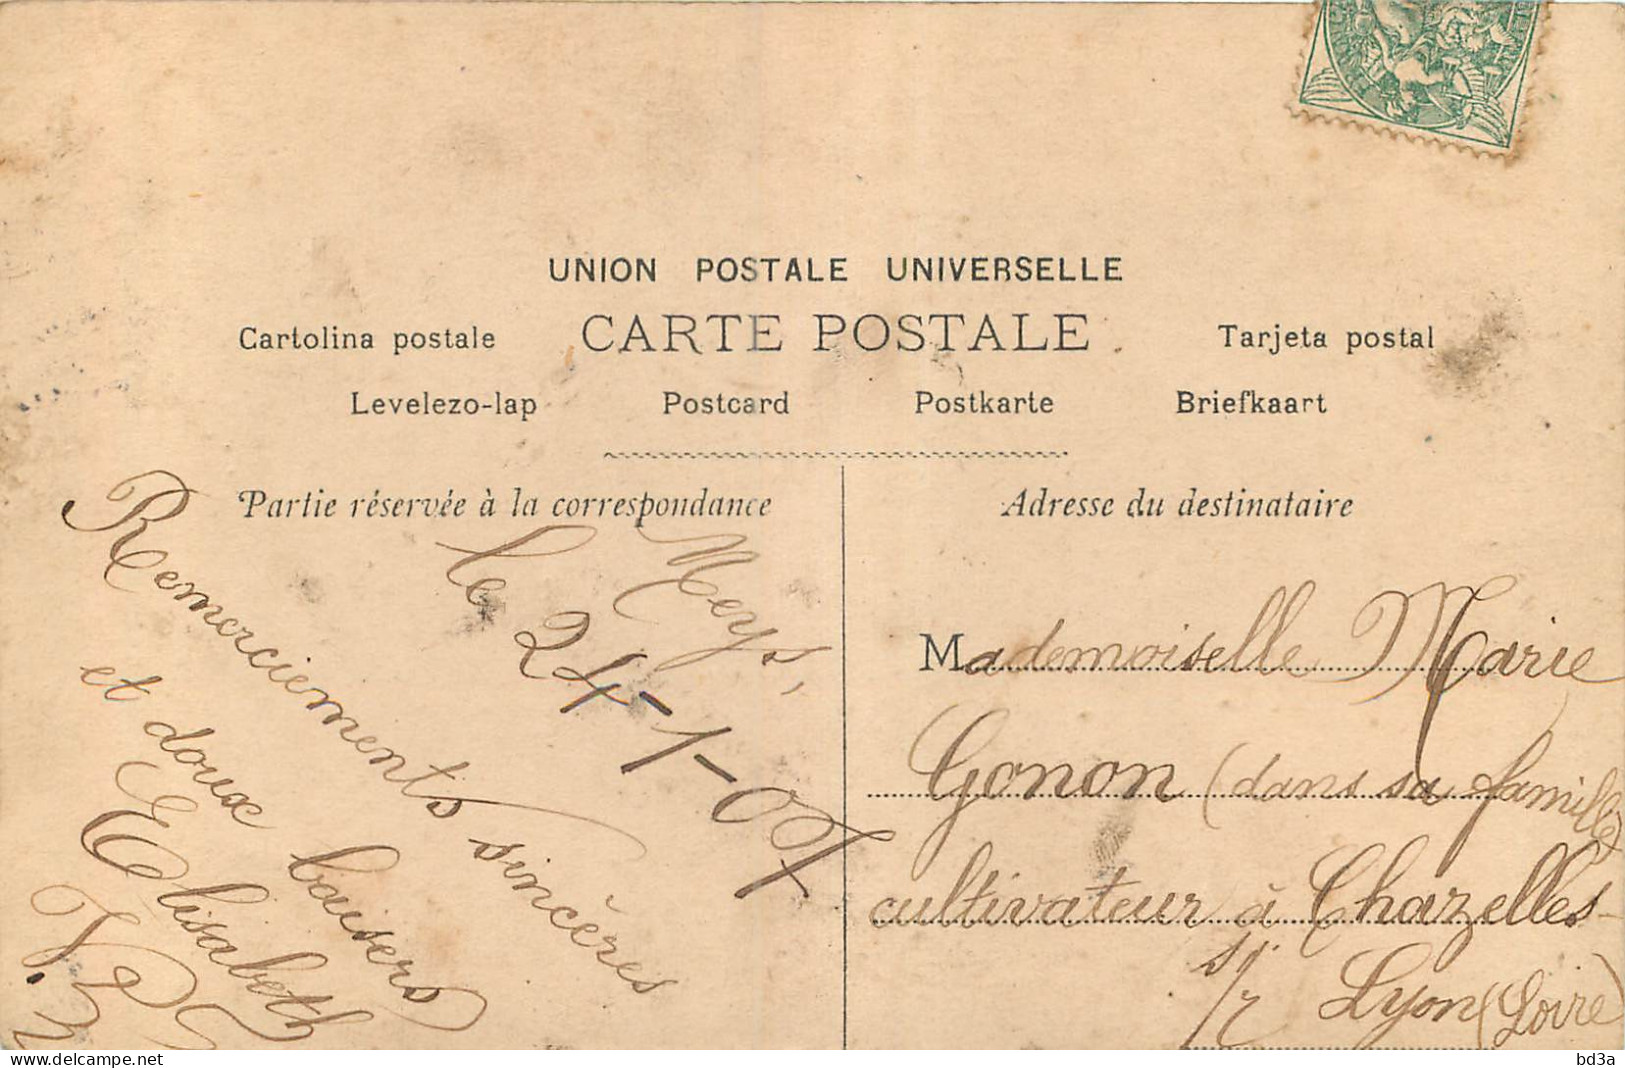 UNION POSTALE UNIVERSELLE
Cartolina postale CARTE POSTALE Tarjeta postal
Levelezo-lap Postcard Postkarte Briefkaart
Partie réservée à la correspondance
Meys,
le 24-1-07
Remerciements sincères
et doux baisers
Elisabeth
Adresse du destinataire
Mademoiselle Marie
Gonon (dans sa famille)
cultivateur à Chazelles-
s/ Lyon (Loire)
www.delcampe.net
bd3a